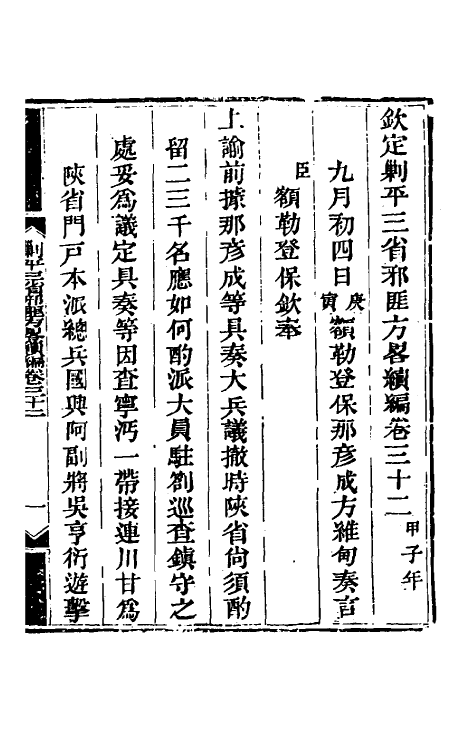 欽定剿平三省邪匪方畧續編卷三十二 甲子年
九月初四日庚寅額勒登保那彥成方維甸奏言
臣額勒登保欽奉
上諭前據那彥成等具奏大兵議撤時陝省尚須酌
留二三千名應如何酌派大員駐劄巡查鎮守之
處妥爲議定具奏等因查寧沔一帶接連川甘爲
陝省門戸本派總兵國興阿副將吳亨衍遊擊
剿平三省邪匪方畧續編卷三十二 一